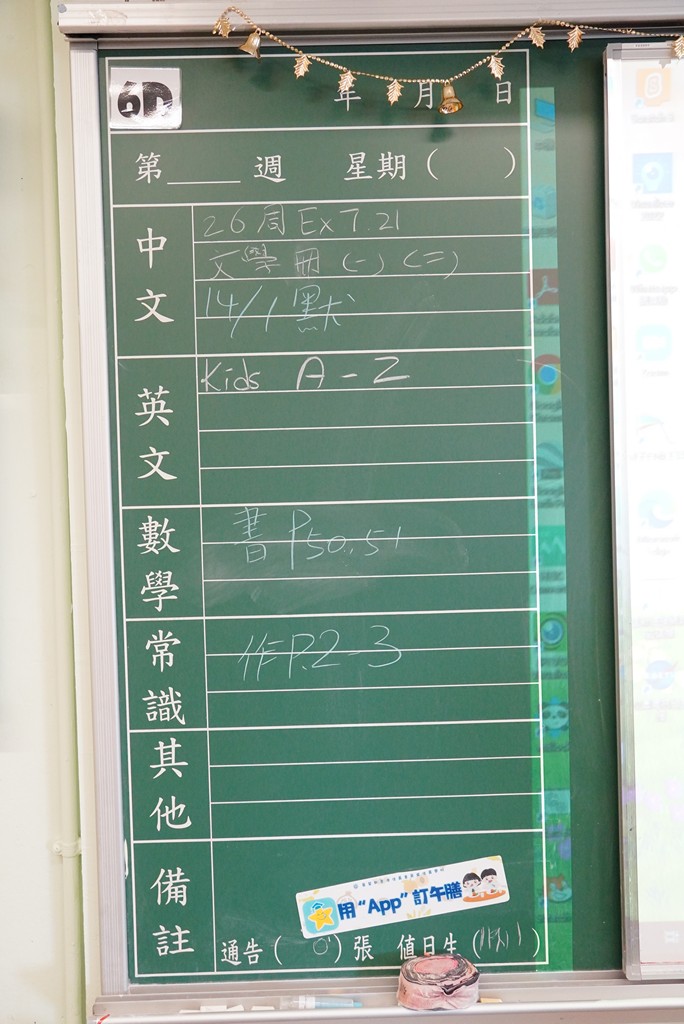 6D
年 月 日
第____週 星期( )
中文
26周 Ex 7.21
文學冊 (一) (二)
14/1 默
英文
Kids A-Z
數學
書 P50.51
常識
作 P.2-3
其他
備註
用“App”訂午膳
通告( 0 )張 值日生( )